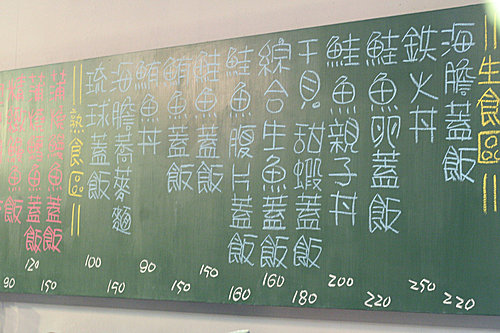 生食區
海膽蓋飯
220
鉄火丼
250
鮭魚卵蓋飯
220
鮭魚親子丼
200
干貝甜蝦蓋飯
180
綜合生魚蓋飯
160
鮭魚腹片蓋飯
180
鮭魚蓋飯
190
鮪魚蓋飯
150
鮪魚丼
90
海膽蕎麥麵
190
琉球蓋飯
100
熟食區
魚蓋飯
150
魚蓋飯
120
飯
90